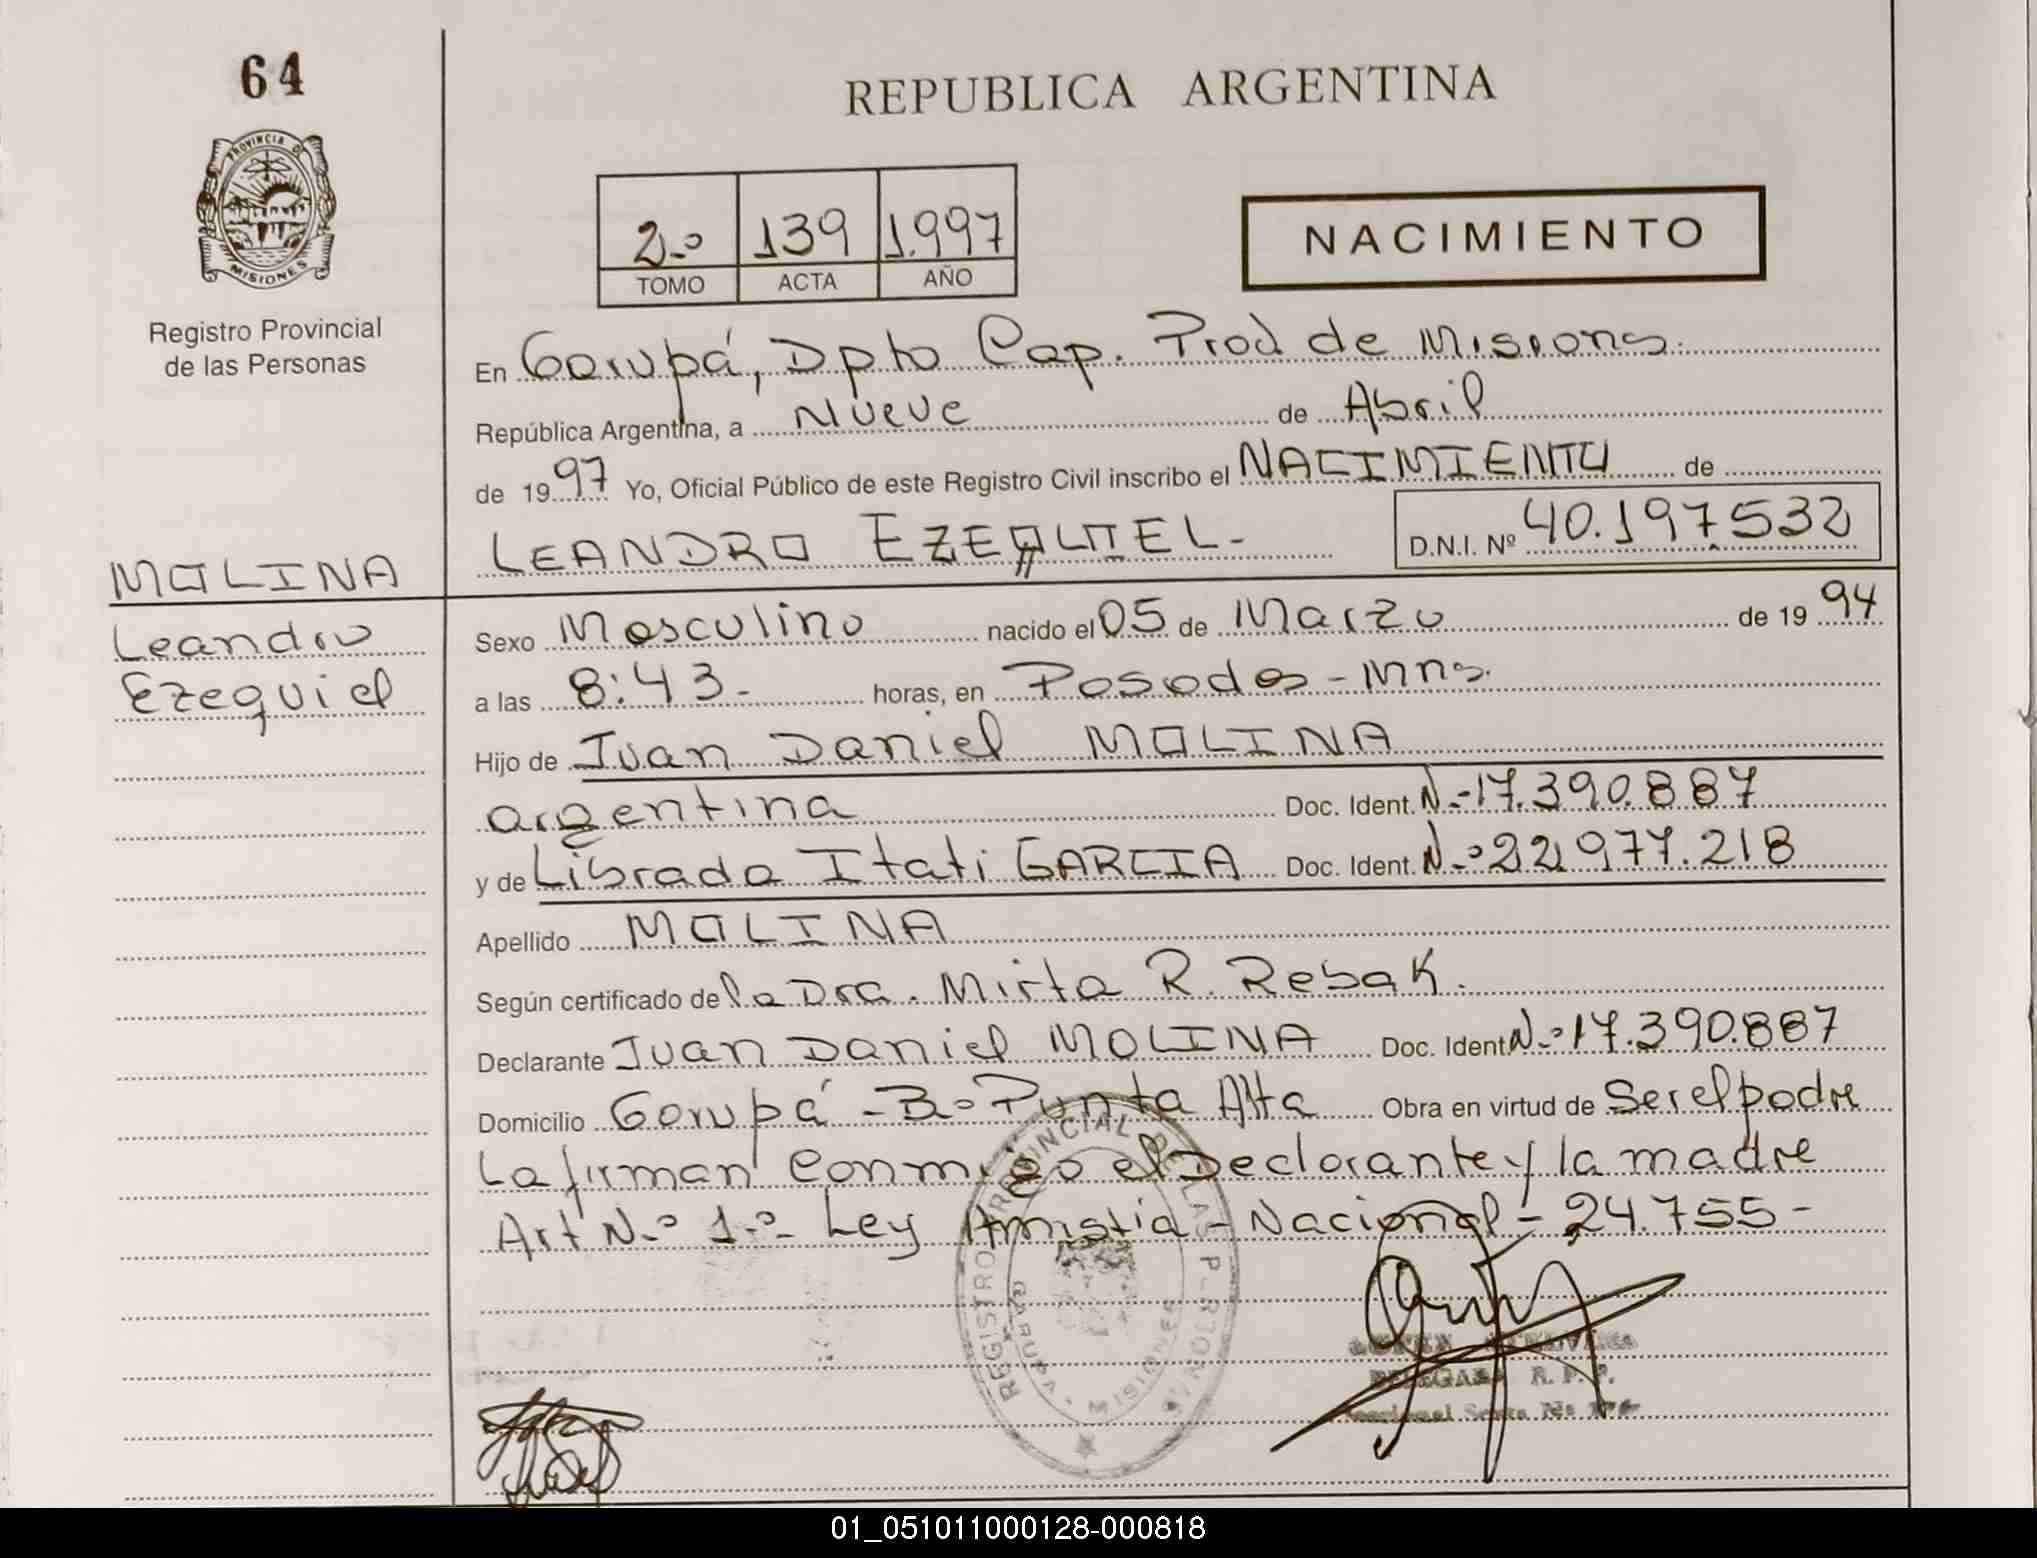 64
REPUBLICA ARGENTINA
PROVINCIA DE
MISIONES
Registro Provincial
de las Personas
2.º 139 1.997
TOMO ACTA AÑO
NACIMIENTO
En Garupá, Dpto Cap. Prod de Misiones.
República Argentina, a Nueve de Abril
de 1997 Yo, Oficial Público de este Registro Civil inscribo el NACIMIENTO de
LEANDRO EZEQUIEL- D.N.I. Nº 40.197.532
MOLINA
Leandro
Ezequiel
Sexo Masculino nacido el 05 de Marzo de 1994
a las 8:43.- horas, en Posadas - Mns.
Hijo de Juan Daniel MOLINA
argentina Doc. Ident. N.º 17.390.887
y de Librada Itati GARCIA Doc. Ident. N.º 22.977.218
Apellido MOLINA
Según certificado de la Dra. Mirta R. Rebak.
Declarante Juan Daniel MOLINA Doc. Ident N.º 17.390.887
Domicilio Garupá - B.º Punta Alta Obra en virtud de Ser el padre
La firman conmigo el Declarante y la madre
Art N.º 1.º Ley Amistia - Nacional - 24.755 -
REGISTRO PROVINCIAL DE LAS PERSONAS
GARUPA - MISIONES
R. P. P.
01_051011000128-000818